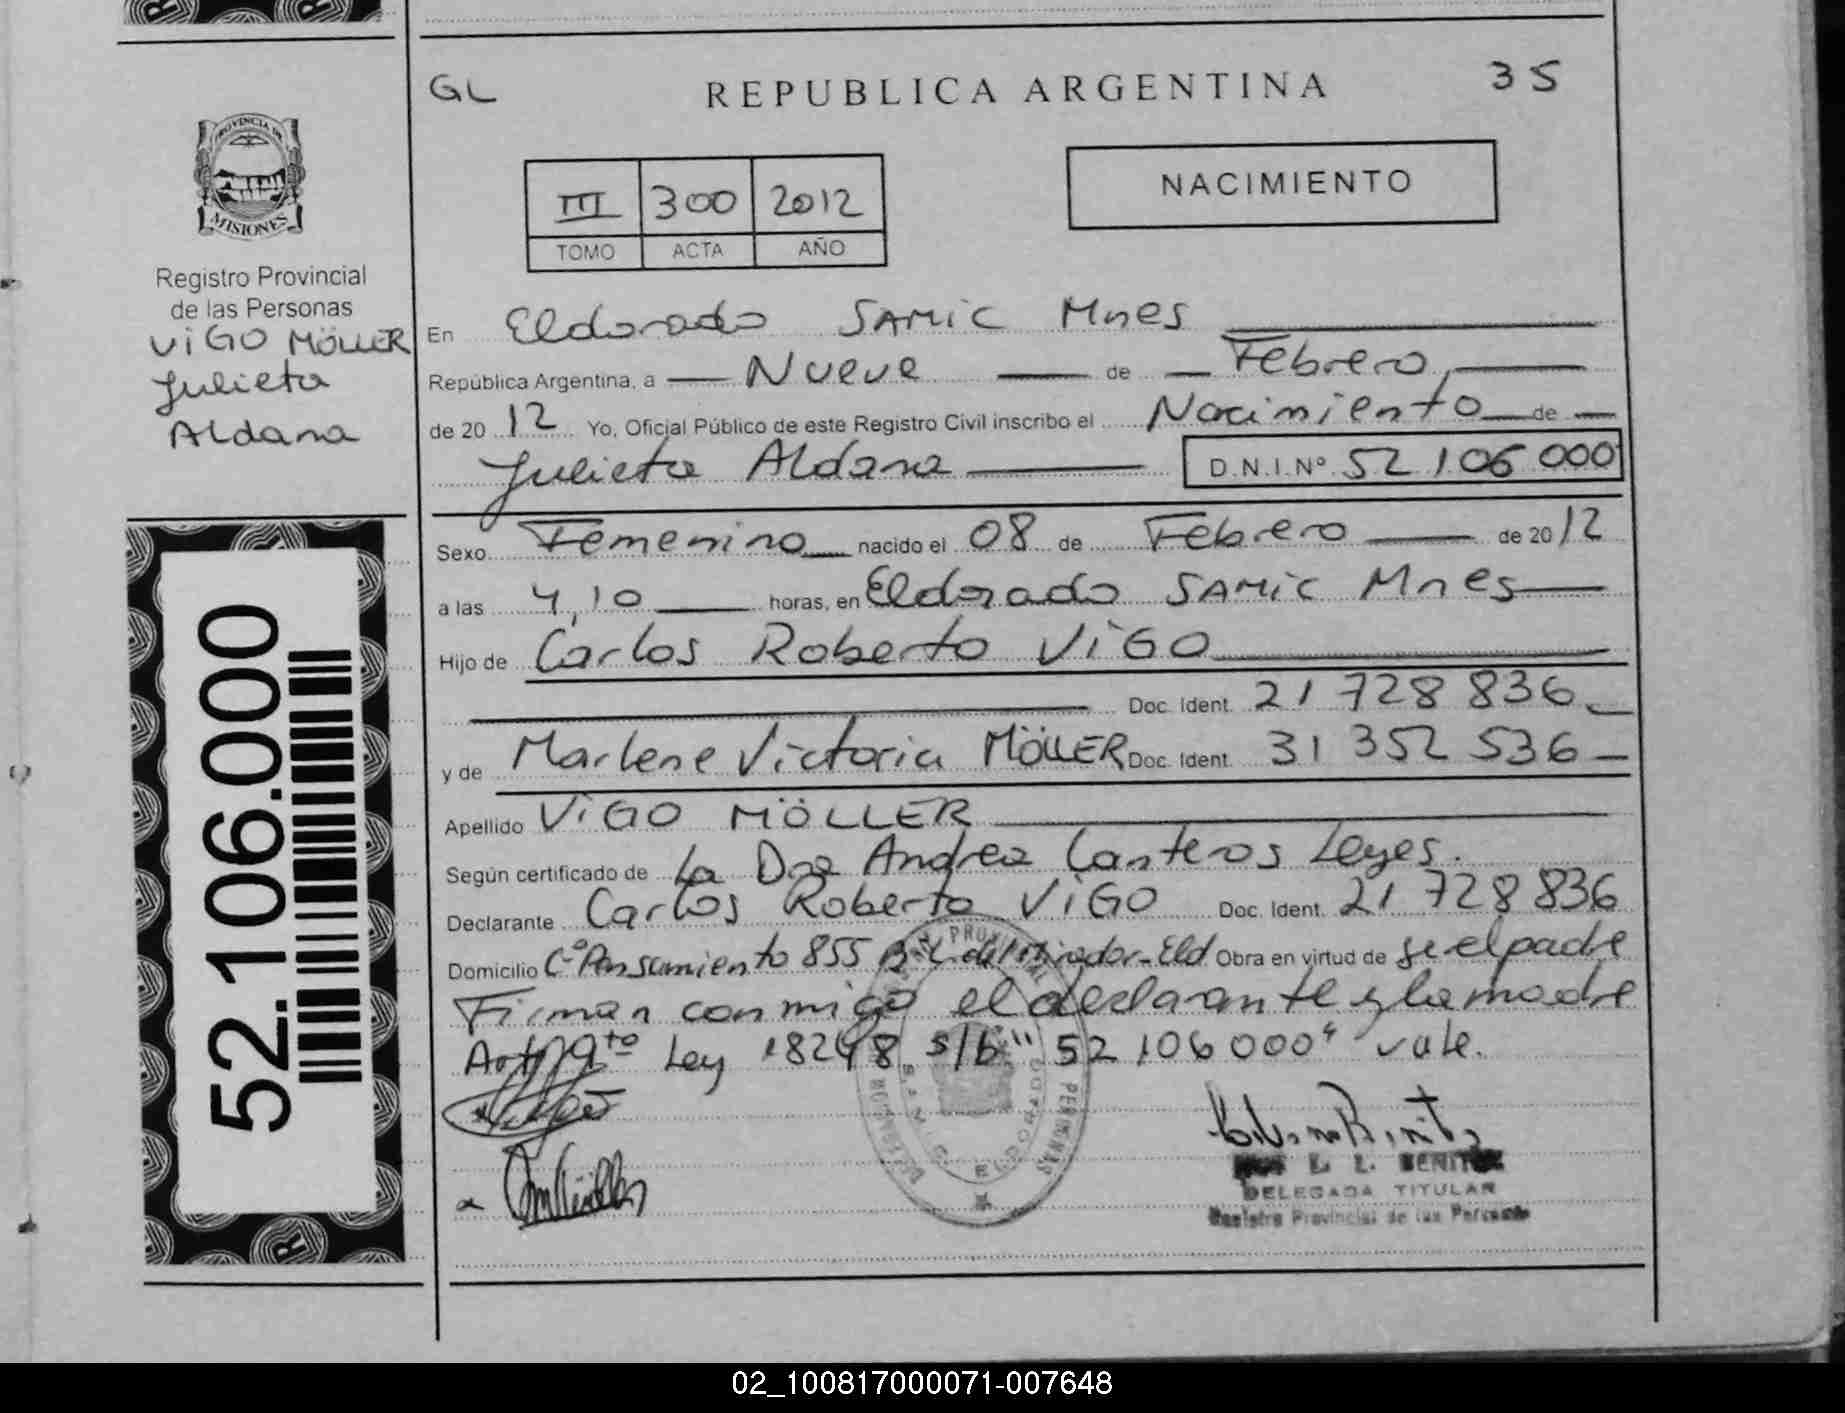 GL
REPUBLICA ARGENTINA
35
PROVINCIA DE
MISIONES
Registro Provincial
de las Personas
ViGO MÖLLER
Julieta
Aldana
52.106.000
III 300 2012
TOMO ACTA AÑO
NACIMIENTO
En Eldorado SAMiC Mnes
República Argentina, a Nueve de Febrero
de 2012 Yo, Oficial Público de este Registro Civil inscribo el Nacimiento de
Julieta Aldana D.N.I.Nº 52 106 000
Sexo Femenino nacido el 08 de Febrero de 2012
a las 4,10 horas, en Eldorado SAMiC Mnes
Hijo de Carlos Roberto ViGO
Doc. Ident. 21 728 836
y de Marlene Victoria MÖLLER Doc. Ident. 31 352 536
Apellido ViGO MÖLLER
Según certificado de La Dra Andrea Canteros Leyes.
Declarante Carlos Roberto ViGO Doc. Ident. 21 728 836
Domicilio Cº Pensamiento 855 del Mirador-Eld Obra en virtud de se el padre
Firman conmigo el declarante y la madre
Art 9to Ley 18248 s/b "52 106 000" vale.
S.A.M.I.C. ELDORADO
L. L. BENITEZ
DELEGADA TITULAR
Registro Provincial de las Personas
02_100817000071-007648